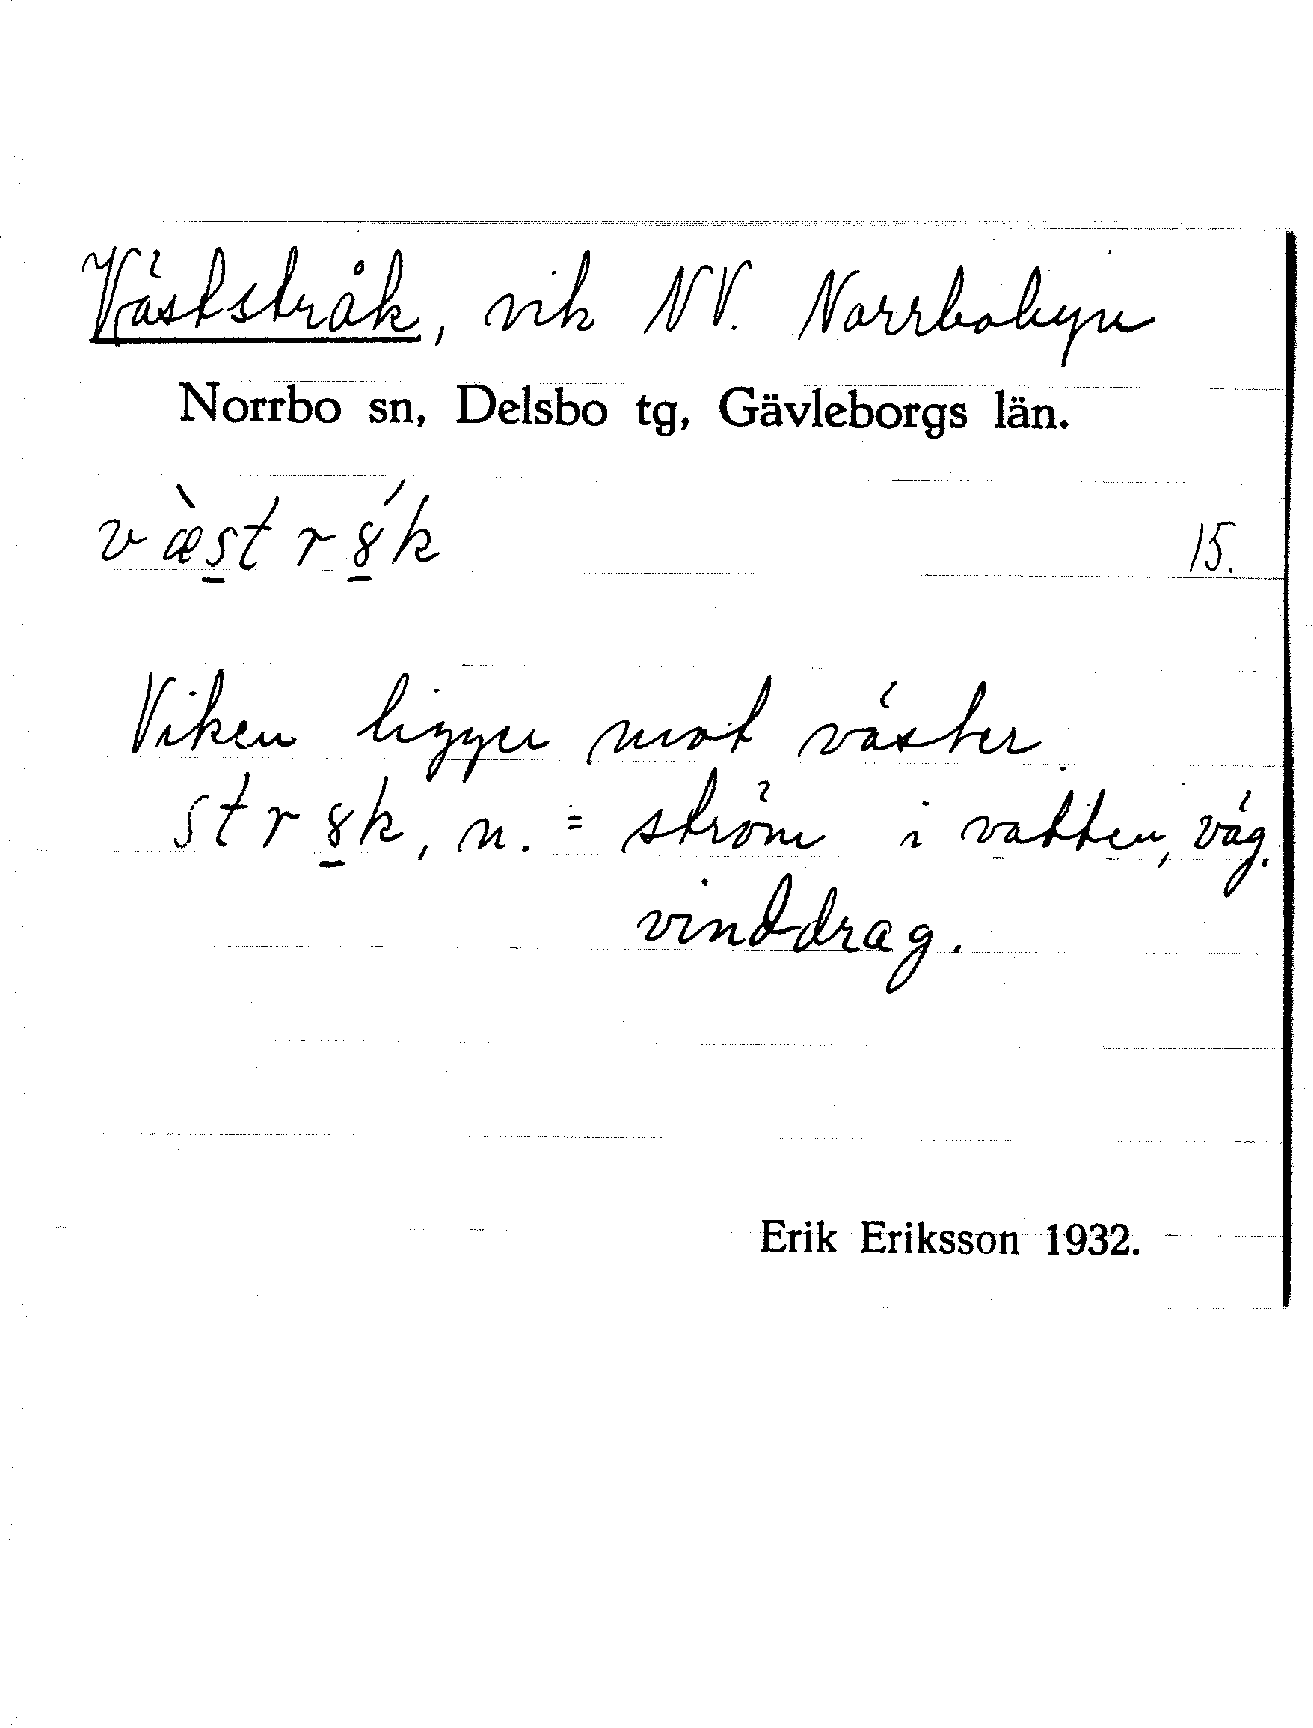 Väststråk, vik NV. Norrbobyn
Norrbo sn, Delsbo tg, Gävleborgs län.
v æ̀s̠t r 8̠́k 15.
Viken ligger mot väster.
str8̠k, n. = ström i vatten, våg.
vinddrag.
Erik Eriksson 1932.